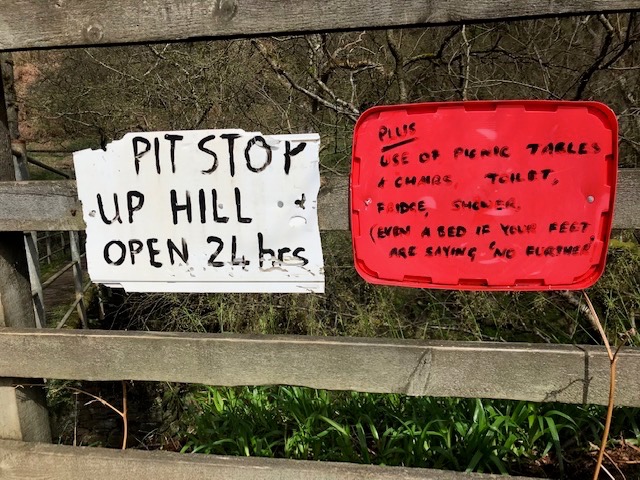 PIT STOP
UP HILL
OPEN 24 hrs
PLUS
USE OF PICNIC TABLES
& CHAIRS, TOILET,
FRIDGE, SHOWER,
(EVEN A BED IF YOUR FEET
ARE SAYING 'NO FURTHER'